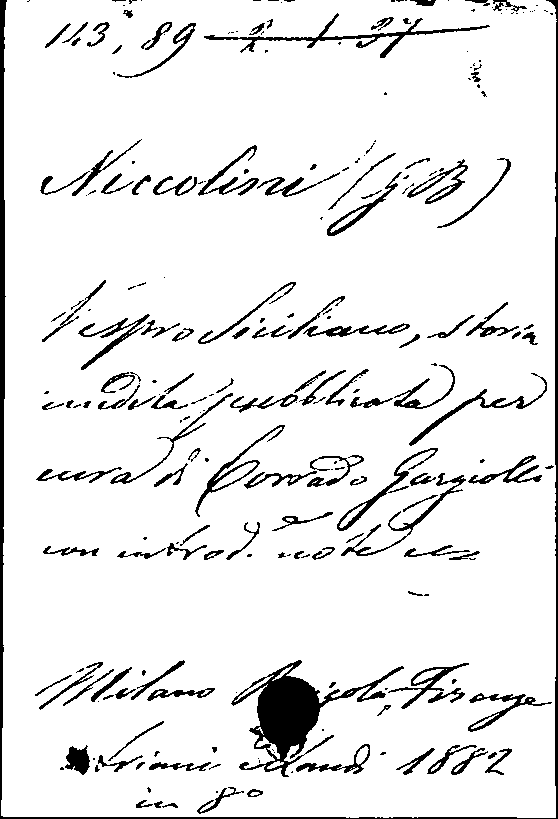 143, 89 2. 1. 37
Niccolini (G. B)
Vespro Siciliano, storia
inedita pubblicata per
cura di Corrado Gargiolli
con introd. e note
Milano Firenze
1882
in 8º